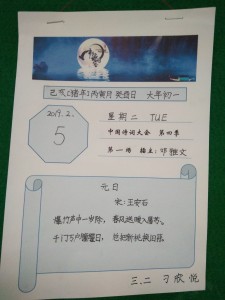 己亥(猪年)丙寅月 癸酉日 大年初一
2019.2.
5
星期二 TUE
中国诗词大会 第四季
第一场 擂主:邓雅文
元日
宋:王安石
爆竹声中一岁除,春风送暖入屠苏。
千门万户曈曈日,总把新桃换旧符。
三.二 刁欣悦